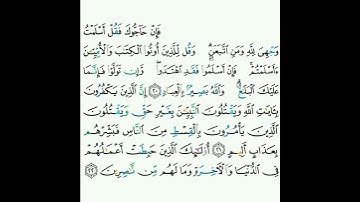 فَإِنْ حَآجُّوكَ فَقُلْ أَسْلَمْتُ
وَجْهِىَ لِلَّهِ وَمَنِ ٱتَّبَعَنِ ۗ وَقُل لِّلَّذِينَ أُوتُوا۟ ٱلْكِتَـٰبَ وَٱلْأُمِّيِّـۧنَ
ءَأَسْلَمْتُمْ ۚ فَإِنْ أَسْلَمُوا۟ فَقَدِ ٱهْتَدَوا۟ ۖ وَّإِن تَوَلَّوْا۟ فَإِنَّمَا
عَلَيْكَ ٱلْبَلَـٰغُ ۗ وَٱللَّهُ بَصِيرٌۢ بِٱلْعِبَادِ ٢٠ إِنَّ ٱلَّذِينَ يَكْفُرُونَ
بِـَٔايَـٰتِ ٱللَّهِ وَيَقْتُلُونَ ٱلنَّبِيِّـۧنَ بِغَيْرِ حَقٍّ وَيَقْتُلُونَ
ٱلَّذِينَ يَأْمُرُونَ بِٱلْقِسْطِ مِنَ ٱلنَّاسِ فَبَشِّرْهُم
بِعَذَابٍ أَلِيمٍ ٢١ أُو۟لَـٰٓئِكَ ٱلَّذِينَ حَبِطَتْ أَعْمَـٰلُهُمْ
فِى ٱلدُّنْيَا وَٱلْـَٔاخِرَةِ وَمَا لَهُم مِّن نَّـٰصِرِينَ ٢٢